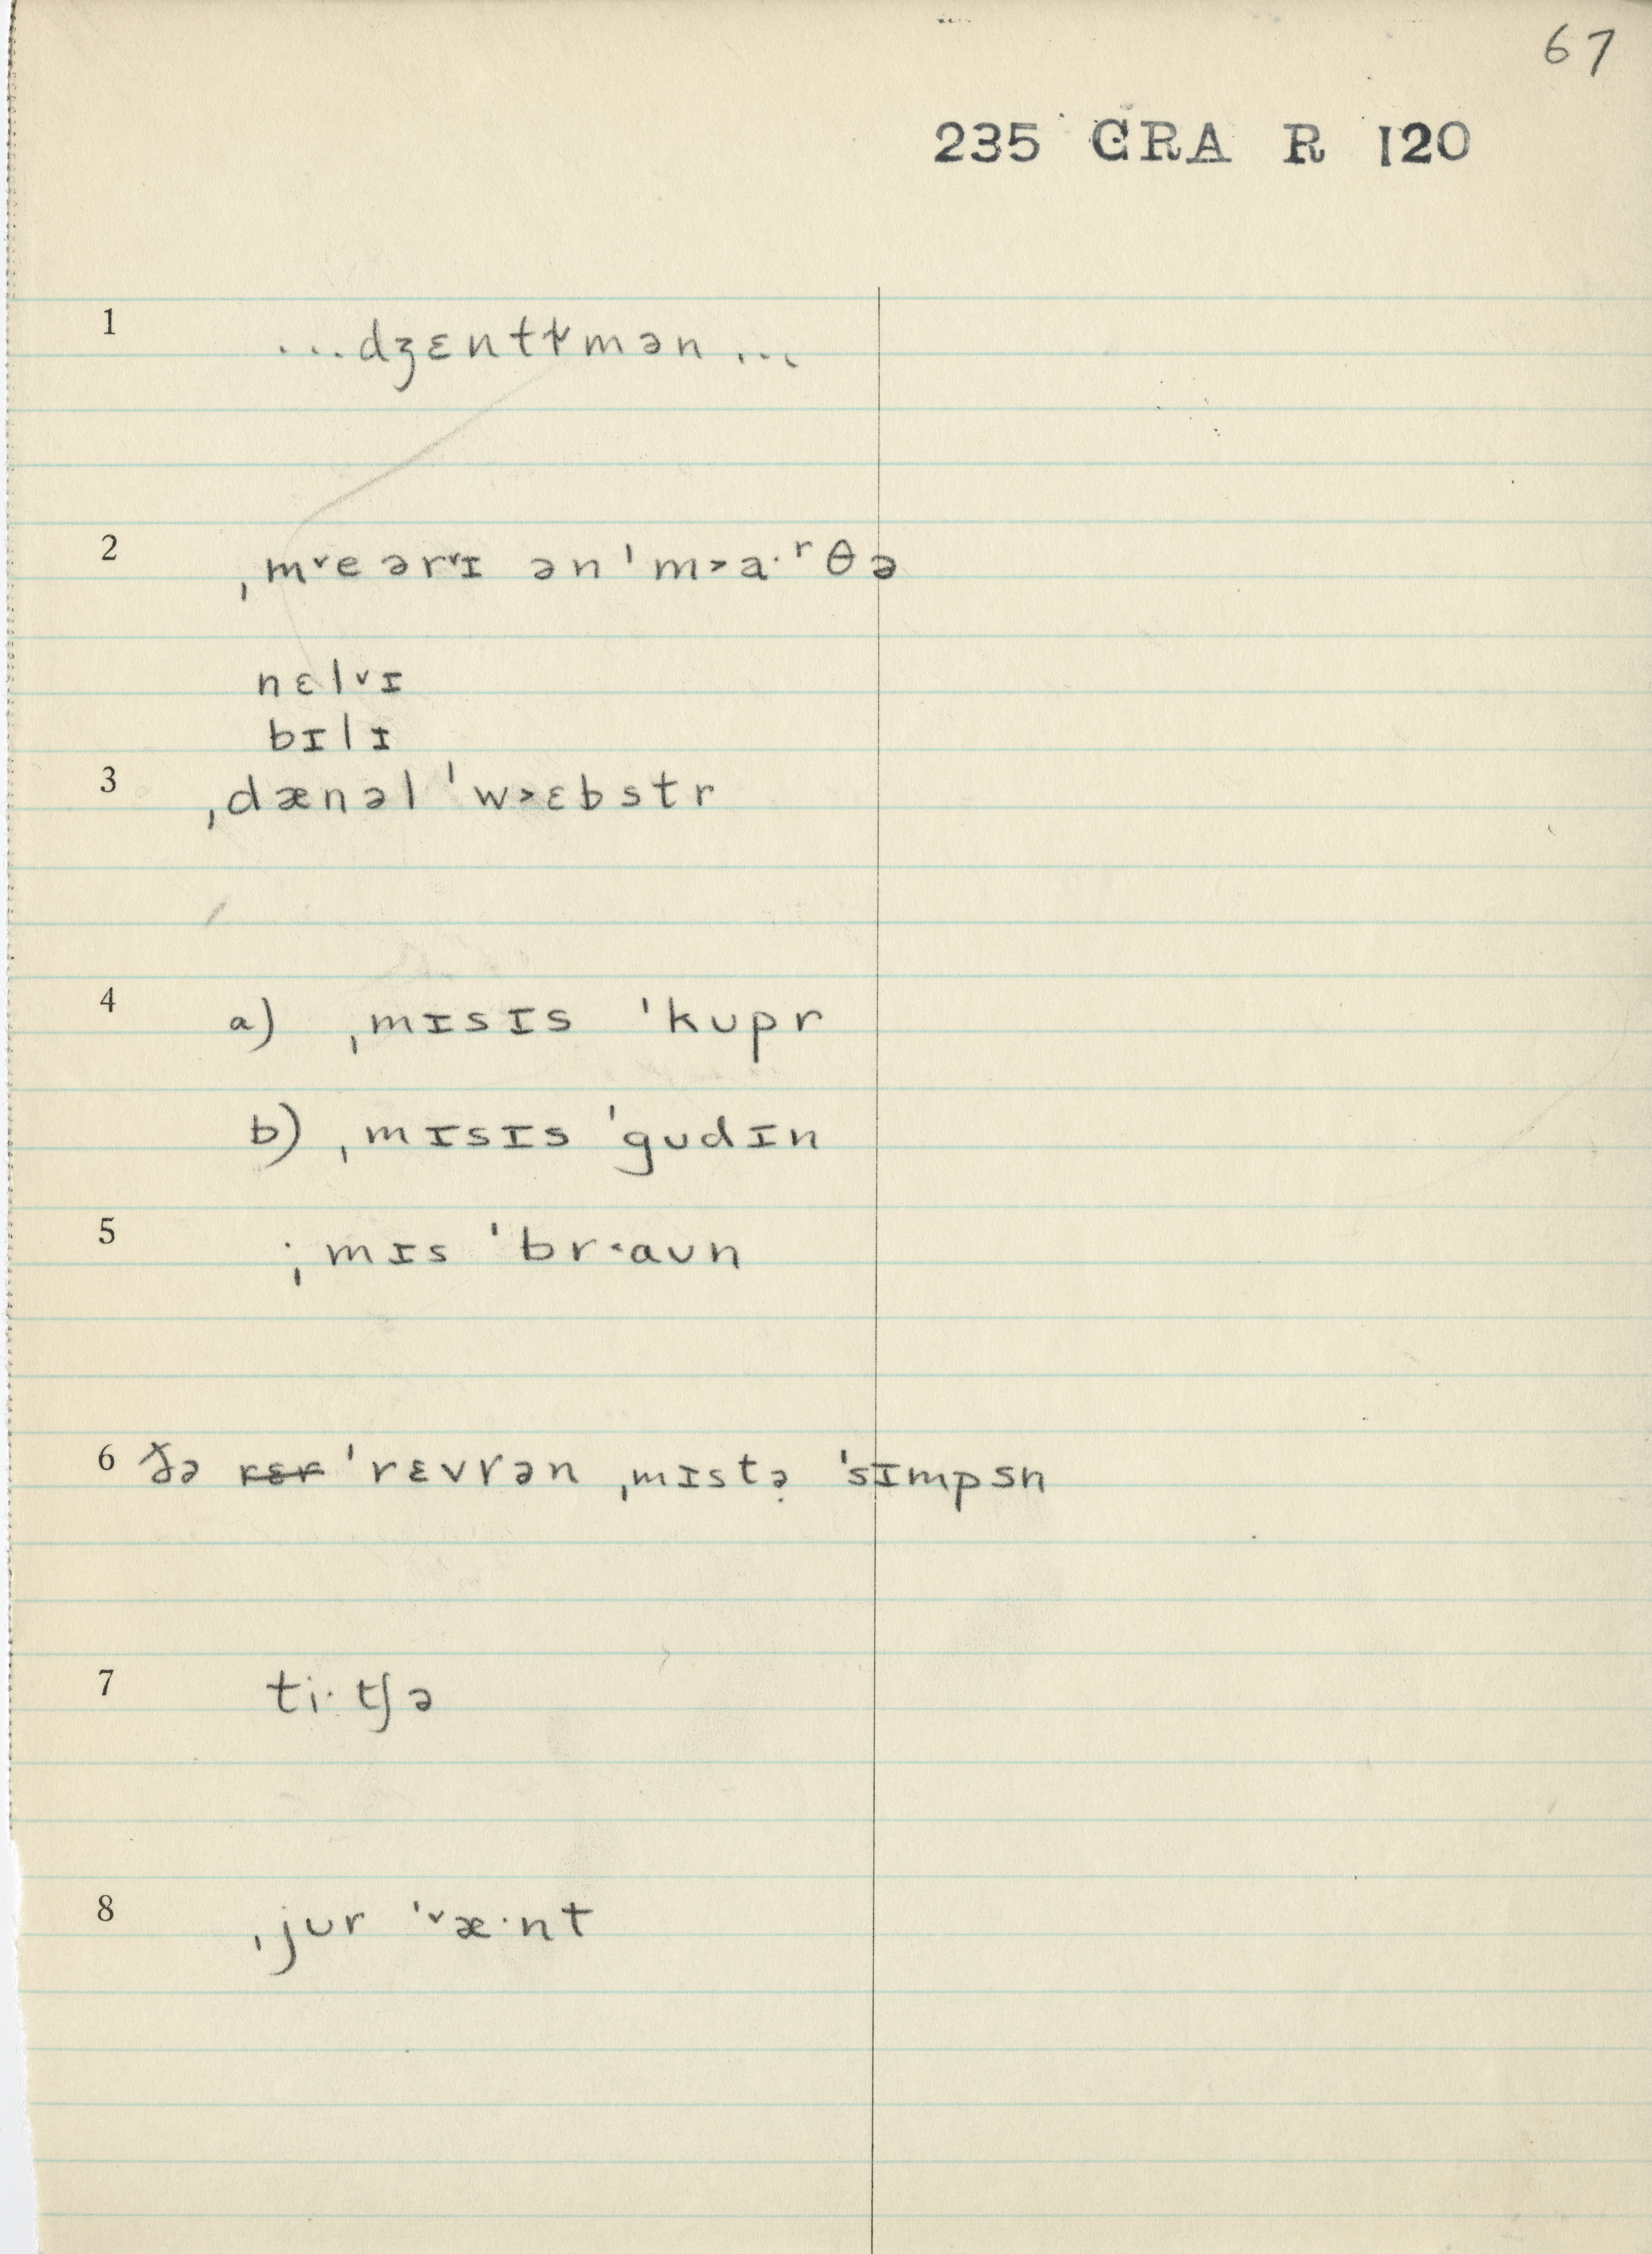 67
235 GRA R 120
1 ...dʒɛntɫmən...
2 ˌm˅eərɪ˅ ən ˈm˃a·ʳθə
nɛl˅ɪ
bɪlɪ
3 ˌdænəl ˈw˃ɛbstr
4 a) ˌmɪsɪs ˈkʊpr
b) ˌmɪsɪs ˈgʊdɪn
5 ˌmɪs ˈbr˂aʊn
6 ðə rɛr ˈrɛvrən ˌmɪstə̣ ˈsɪmpsn
7 ti·tʃə
8 ˌjʊr ˈ˅æ·nt